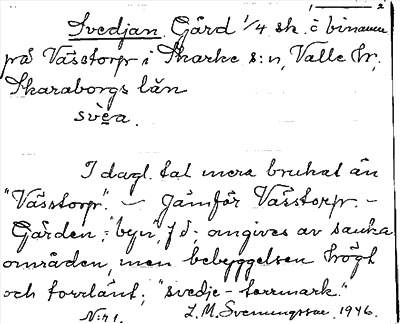 1 2
Svedjan. Gård 1/4 sk. o binamn
på Västtorp i Skarke s:n, Valle hr,
Skaraborgs län
svèa.
I dagl. tal mera brukat än
"Västtorp". – Jämför Västtorp. –
Gården, "byn", f d; omgives av sanka
områden, men bebyggelsen högt
och torrlänt; "svedje-torrmark."
N:r 1. L. M. Svenungsson. 1946.